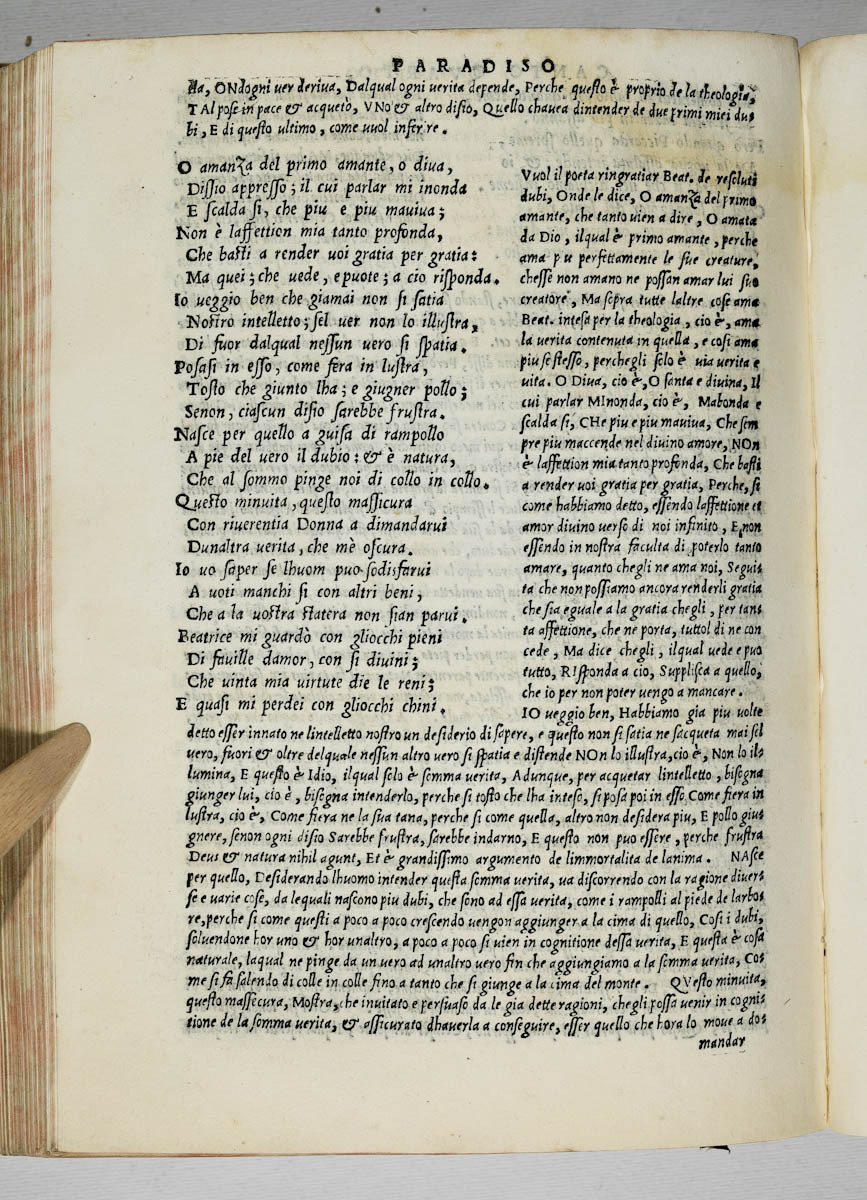 PARADISO
sta, ONdogni uer deriua, Dalqual ogni uerita depende, Perche questo è proprio de la theologia,
TAl pose in pace & acquetò, VNo & altro disio, Quello chauea dintender de due primi miei du-
bi, E di questo ultimo, come uuol inferire.
O amanza del primo amante, o diua,
Dissio appresso; il cui parlar mi inonda
E scalda si, che piu e piu mauiua;
Non è laffettion mia tanto profonda,
Che basti a render uoi gratia per gratia:
Ma quei; che uede, e puote; a cio risponda.
Io ueggio ben che giamai non si satia
Nostro intelletto; sel uer non lo illustra,
Di fuor dalqual nessun uero si spatia.
Posasi in esso, come fera in lustra,
Tosto che giunto lha; e giugner pollo;
Senon, ciascun disio sarebbe frustra.
Nasce per quello a guisa di rampollo
A pie del uero il dubio: & è natura,
Che al sommo pinge noi di collo in collo.
Questo minuita, questo massicura
Con riuerentia Donna a dimandarui
Dunaltra uerita, che mè oscura.
Io uo saper se lhuom puo sodisfarui
A uoti manchi si con altri beni,
Che a la uostra statera non sian parui.
Beatrice mi guardò con gliocchi pieni
Di fauille damor, con si diuini;
Che uinta mia uirtute die le reni;
E quasi mi perdei con gliocchi chini.
Vuol il poeta ringratiar Beat. de resoluti
dubi, Onde le dice, O amanza del primo
amante, che tanto uien a dire, O amata
da Dio, ilqual è primo amante, perche
ama piu perfettamente le sue creature,
chesse non amano ne possan amar lui suo
creatore, Ma sopra tutte laltre cose ama
Beat. intesa per la theologia, cio è, ama
la uerita contenuta in quella, e cosi ama
piu se stesso, perchegli solo è uia uerita e
uita. O Diua, cio è, O santa e diuina, Il
cui parlar MInonda, cio è, Mabonda e
scalda si, CHe piu e piu mauiua, Che sem
pre piu maccende nel diuino amore, NOn
è laffettion mia tanto profonda, Che basti
a render uoi gratia per gratia, Perche, si
come habbiamo detto, essendo laffettione et
amor diuino uerso di noi infinito, E non
essendo in nostra faculta di poterlo tanto
amare, quanto chegli ne ama noi, Segui-
ta che non possiamo ancora renderli gratia
che sia eguale a la gratia chegli, per tan-
ta affettione, che ne porta, tuttol di ne con
cede, Ma dice chegli, ilqual uede e puo
tutto, RIsponda a cio, Supplisca a quello,
che io per non poter uengo a mancare.
IO ueggio ben, Habbiamo gia piu uolte
detto esser innato ne lintelletto nostro un desiderio di sapere, e questo non si satia ne sacqueta mai sel
uero, fuori & oltre delquale nessun altro uero si spatia e distende NOn lo illustra, cio è, Non lo il-
lumina, E questo è Idio, ilqual solo è somma uerita, Adunque, per acquetar lintelletto, bisogna
giunger lui, cio è, bisogna intenderlo, perche si tosto che lha inteso, si posa poi in esso Come fiera in
lustra, cio è, Come fiera ne la sua tana, perche si come quella, altro non desidera piu, E pollo giu-
gnere, senon ogni disio Sarebbe frustra, sarebbe indarno, E questo non puo essere, perche frustra
Deus & natura nihil agunt, Et è grandissimo argumento de limmortalita de lanima. NAsce
per quello, Desiderando lhuomo intender questa somma uerita, ua discorrendo con la ragione diuer-
se e uarie cose, da lequali nascono piu dubi, che sono ad essa uerita, come i rampolli al piede de larbo-
re, perche si come questi a poco a poco crescendo uengon aggiunger a la cima di quello, Cosi i dubi,
soluendone hor uno & hor unaltro, a poco a poco si uien in cognitione dessa uerita, E questa è cosa
naturale, laqual ne pinge da un uero ad unaltro uero fin che aggiungiamo a la somma uerita, Co-
me si fa salendo di colle in colle fino a tanto che si giunge a la cima del monte. QVesto minuita,
questo massecura, Mostra, che inuitato e persuaso da le gia dette ragioni, chegli possa uenir in cogni-
tione de la somma uerita, & assicurato dhauerla a conseguire, esser quello che hora lo moue a do-
mandar